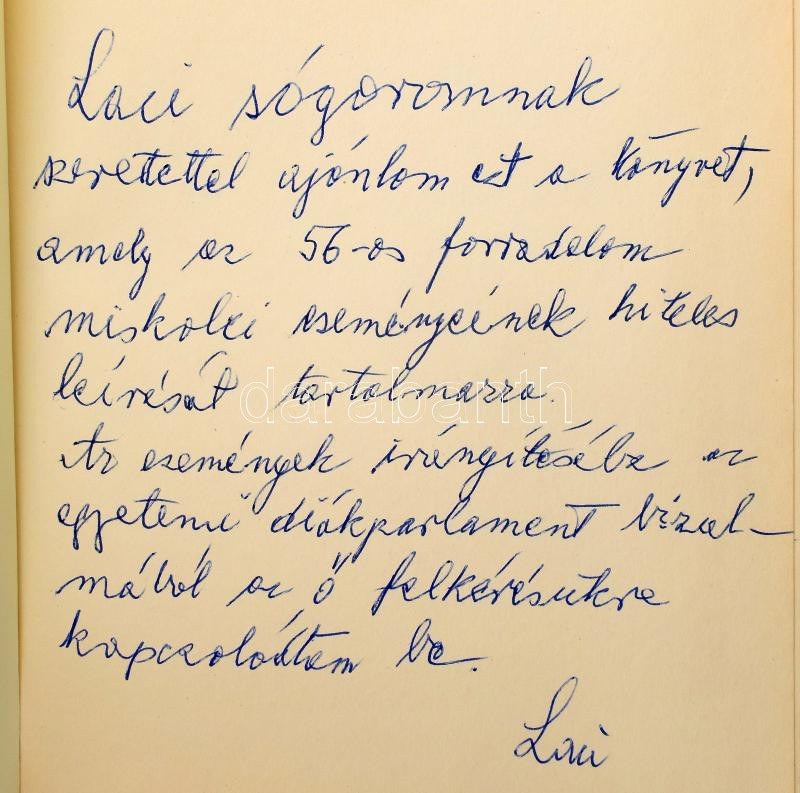 Laci sógoromnak
szeretettel ajánlom ezt a könyvet,
amely az 56-os forradalom
miskolci eseményeinek hiteles
leírását tartalmazza.
darabanth
Az események irányításába az
egyetemi diákparlament bizal-
mából az ő felkérésükre
kapcsolódtam be.
Laci